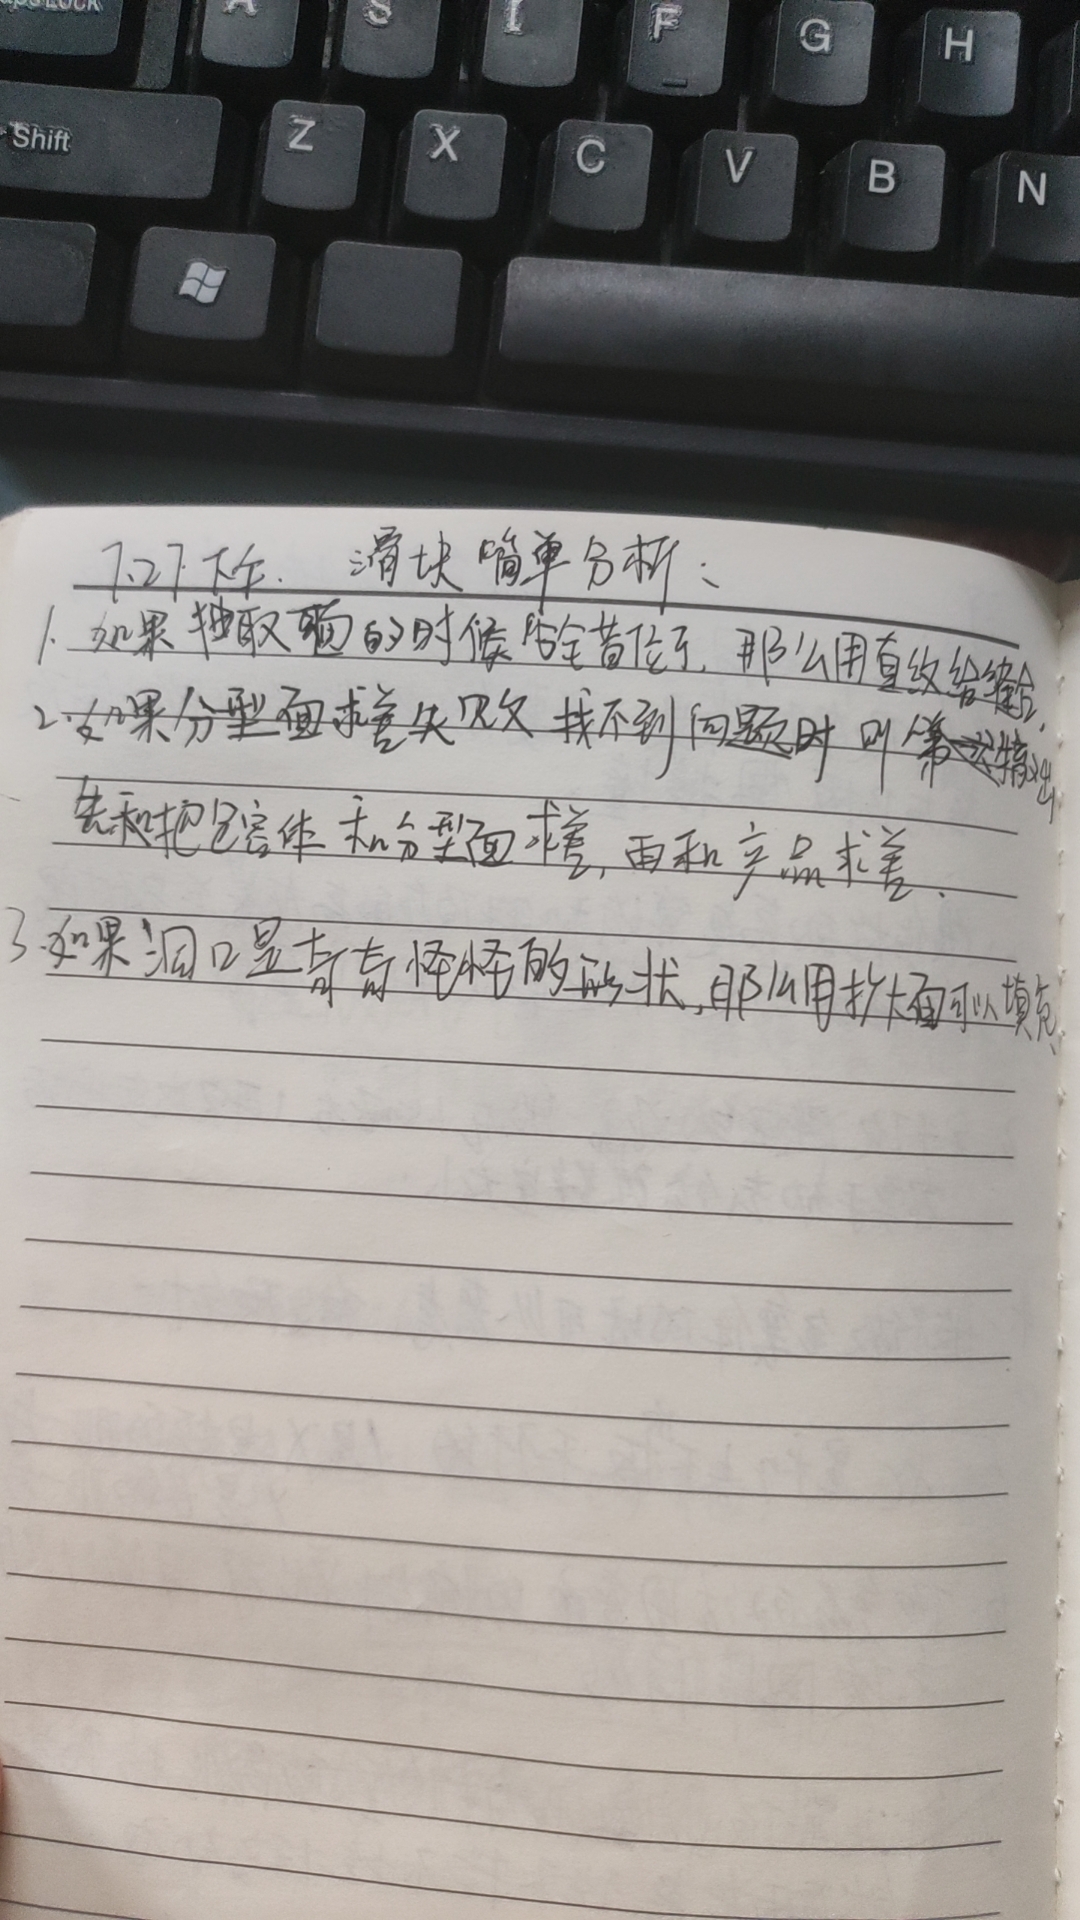 aps Lock A S D F G H
Shift Z X C V B N
7.27.下午. 滑块简单分析：
1. 如果抽取面的时候 那么用直纹
2. 如果分型面求差失败 找不到问题时
先和把包容体和分型面求差，再和产品求差.
3. 如果洞口是奇奇怪怪的形状，那么用扩大面可以填充